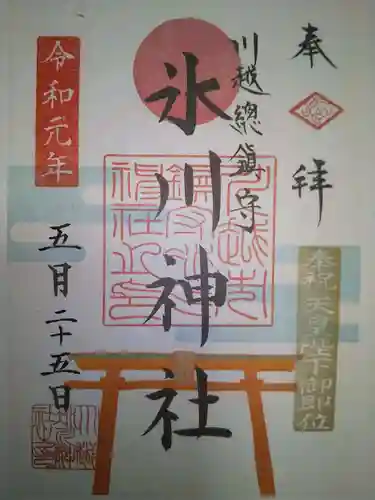 奉拝
奉祝 天皇陛下御即位
川越總鎮守
氷川神社
令和元年
五月二十五日